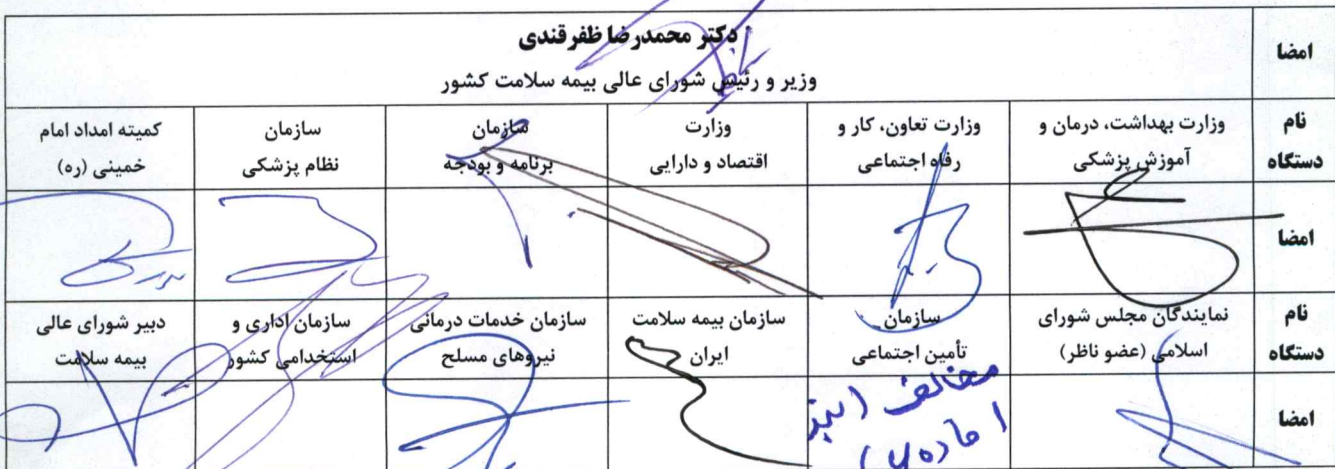 امضا
دکتر محمدرضا ظفرقندی
وزیر و رئیس شورای عالی بیمه سلامت کشور
نام دستگاه
وزارت بهداشت، درمان و
آموزش پزشکی
وزارت تعاون، کار و
رفاه اجتماعی
وزارت
اقتصاد و دارایی
سازمان
برنامه و بودجه
سازمان
نظام پزشکی
کمیته امداد امام
خمینی (ره)
امضا
نام دستگاه
نمایندگان مجلس شورای
اسلامی (عضو ناظر)
سازمان
تأمین اجتماعی
سازمان بیمه سلامت
ایران
سازمان خدمات درمانی
نیروهای مسلح
سازمان اداری و
استخدامی کشور
دبیر شورای عالی
بیمه سلامت
امضا
مخالف